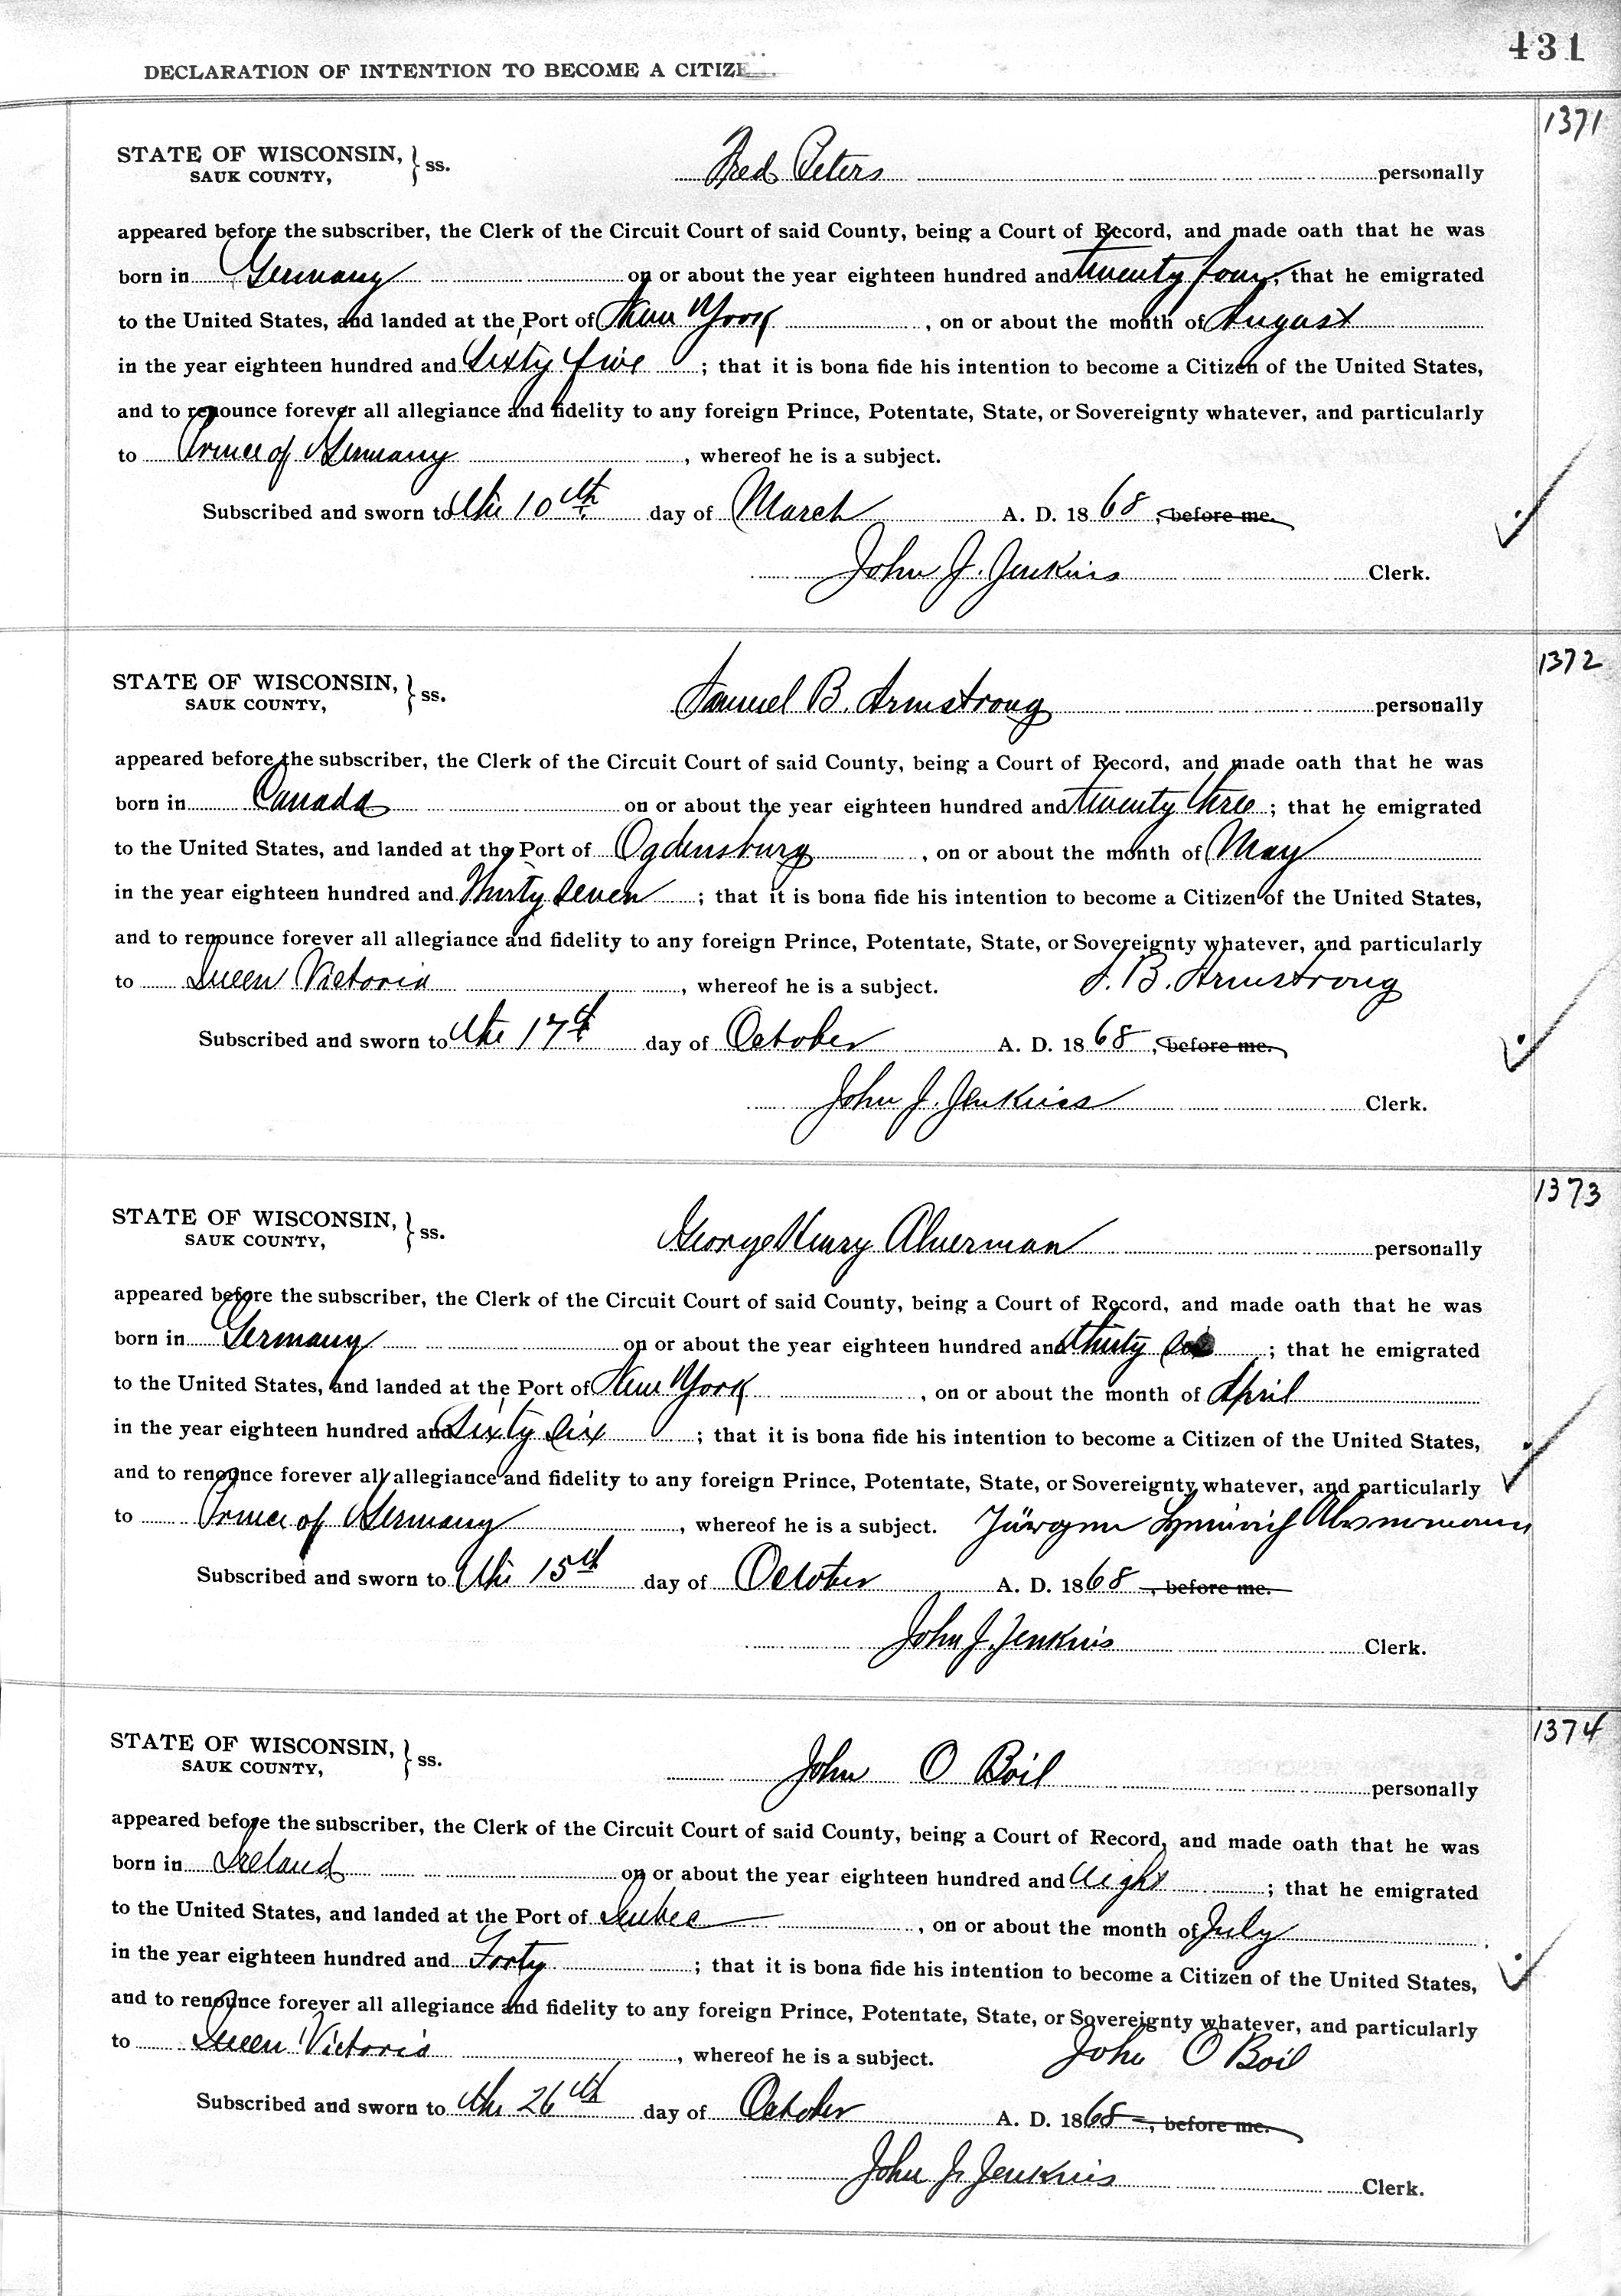 431
DECLARATION OF INTENTION TO BECOME A CITIZE
1371
STATE OF WISCONSIN, } ss.
SAUK COUNTY,
Fred Peters personally
appeared before the subscriber, the Clerk of the Circuit Court of said County, being a Court of Record, and made oath that he was
born in Germany on or about the year eighteen hundred and twenty four; that he emigrated
to the United States, and landed at the Port of New York, on or about the month of August
in the year eighteen hundred and Sixty five; that it is bona fide his intention to become a Citizen of the United States,
and to renounce forever all allegiance and fidelity to any foreign Prince, Potentate, State, or Sovereignty whatever, and particularly
to Prince of Germany, whereof he is a subject.
Subscribed and sworn to the 10th day of March A. D. 1868, before me.
John J. Jenkins Clerk.
1372
STATE OF WISCONSIN, } ss.
SAUK COUNTY,
Samuel B. Armstrong personally
appeared before the subscriber, the Clerk of the Circuit Court of said County, being a Court of Record, and made oath that he was
born in Canada on or about the year eighteen hundred and twenty three; that he emigrated
to the United States, and landed at the Port of Ogdensburg, on or about the month of May
in the year eighteen hundred and Thirty Seven; that it is bona fide his intention to become a Citizen of the United States,
and to renounce forever all allegiance and fidelity to any foreign Prince, Potentate, State, or Sovereignty whatever, and particularly
to Queen Victoria, whereof he is a subject. S. B. Armstrong
Subscribed and sworn to the 17th day of October A. D. 1868, before me.
John J. Jenkins Clerk.
1373
STATE OF WISCONSIN, } ss.
SAUK COUNTY,
George Henry Alverman personally
appeared before the subscriber, the Clerk of the Circuit Court of said County, being a Court of Record, and made oath that he was
born in Germany on or about the year eighteen hundred and thirty; that he emigrated
to the United States, and landed at the Port of New York, on or about the month of April
in the year eighteen hundred and Sixty Six; that it is bona fide his intention to become a Citizen of the United States,
and to renounce forever all allegiance and fidelity to any foreign Prince, Potentate, State, or Sovereignty whatever, and particularly
to Prince of Germany, whereof he is a subject. Jürgen Heinrich
Subscribed and sworn to the 15th day of October A. D. 1868, before me.
John J. Jenkins Clerk.
1374
STATE OF WISCONSIN, } ss.
SAUK COUNTY,
John O Boil personally
appeared before the subscriber, the Clerk of the Circuit Court of said County, being a Court of Record, and made oath that he was
born in Ireland on or about the year eighteen hundred and eight; that he emigrated
to the United States, and landed at the Port of Qubec, on or about the month of July
in the year eighteen hundred and Forty; that it is bona fide his intention to become a Citizen of the United States,
and to renounce forever all allegiance and fidelity to any foreign Prince, Potentate, State, or Sovereignty whatever, and particularly
to Queen Victoria, whereof he is a subject. John O Boil
Subscribed and sworn to the 26th day of October A. D. 1868, before me.
John J. Jenkins Clerk.